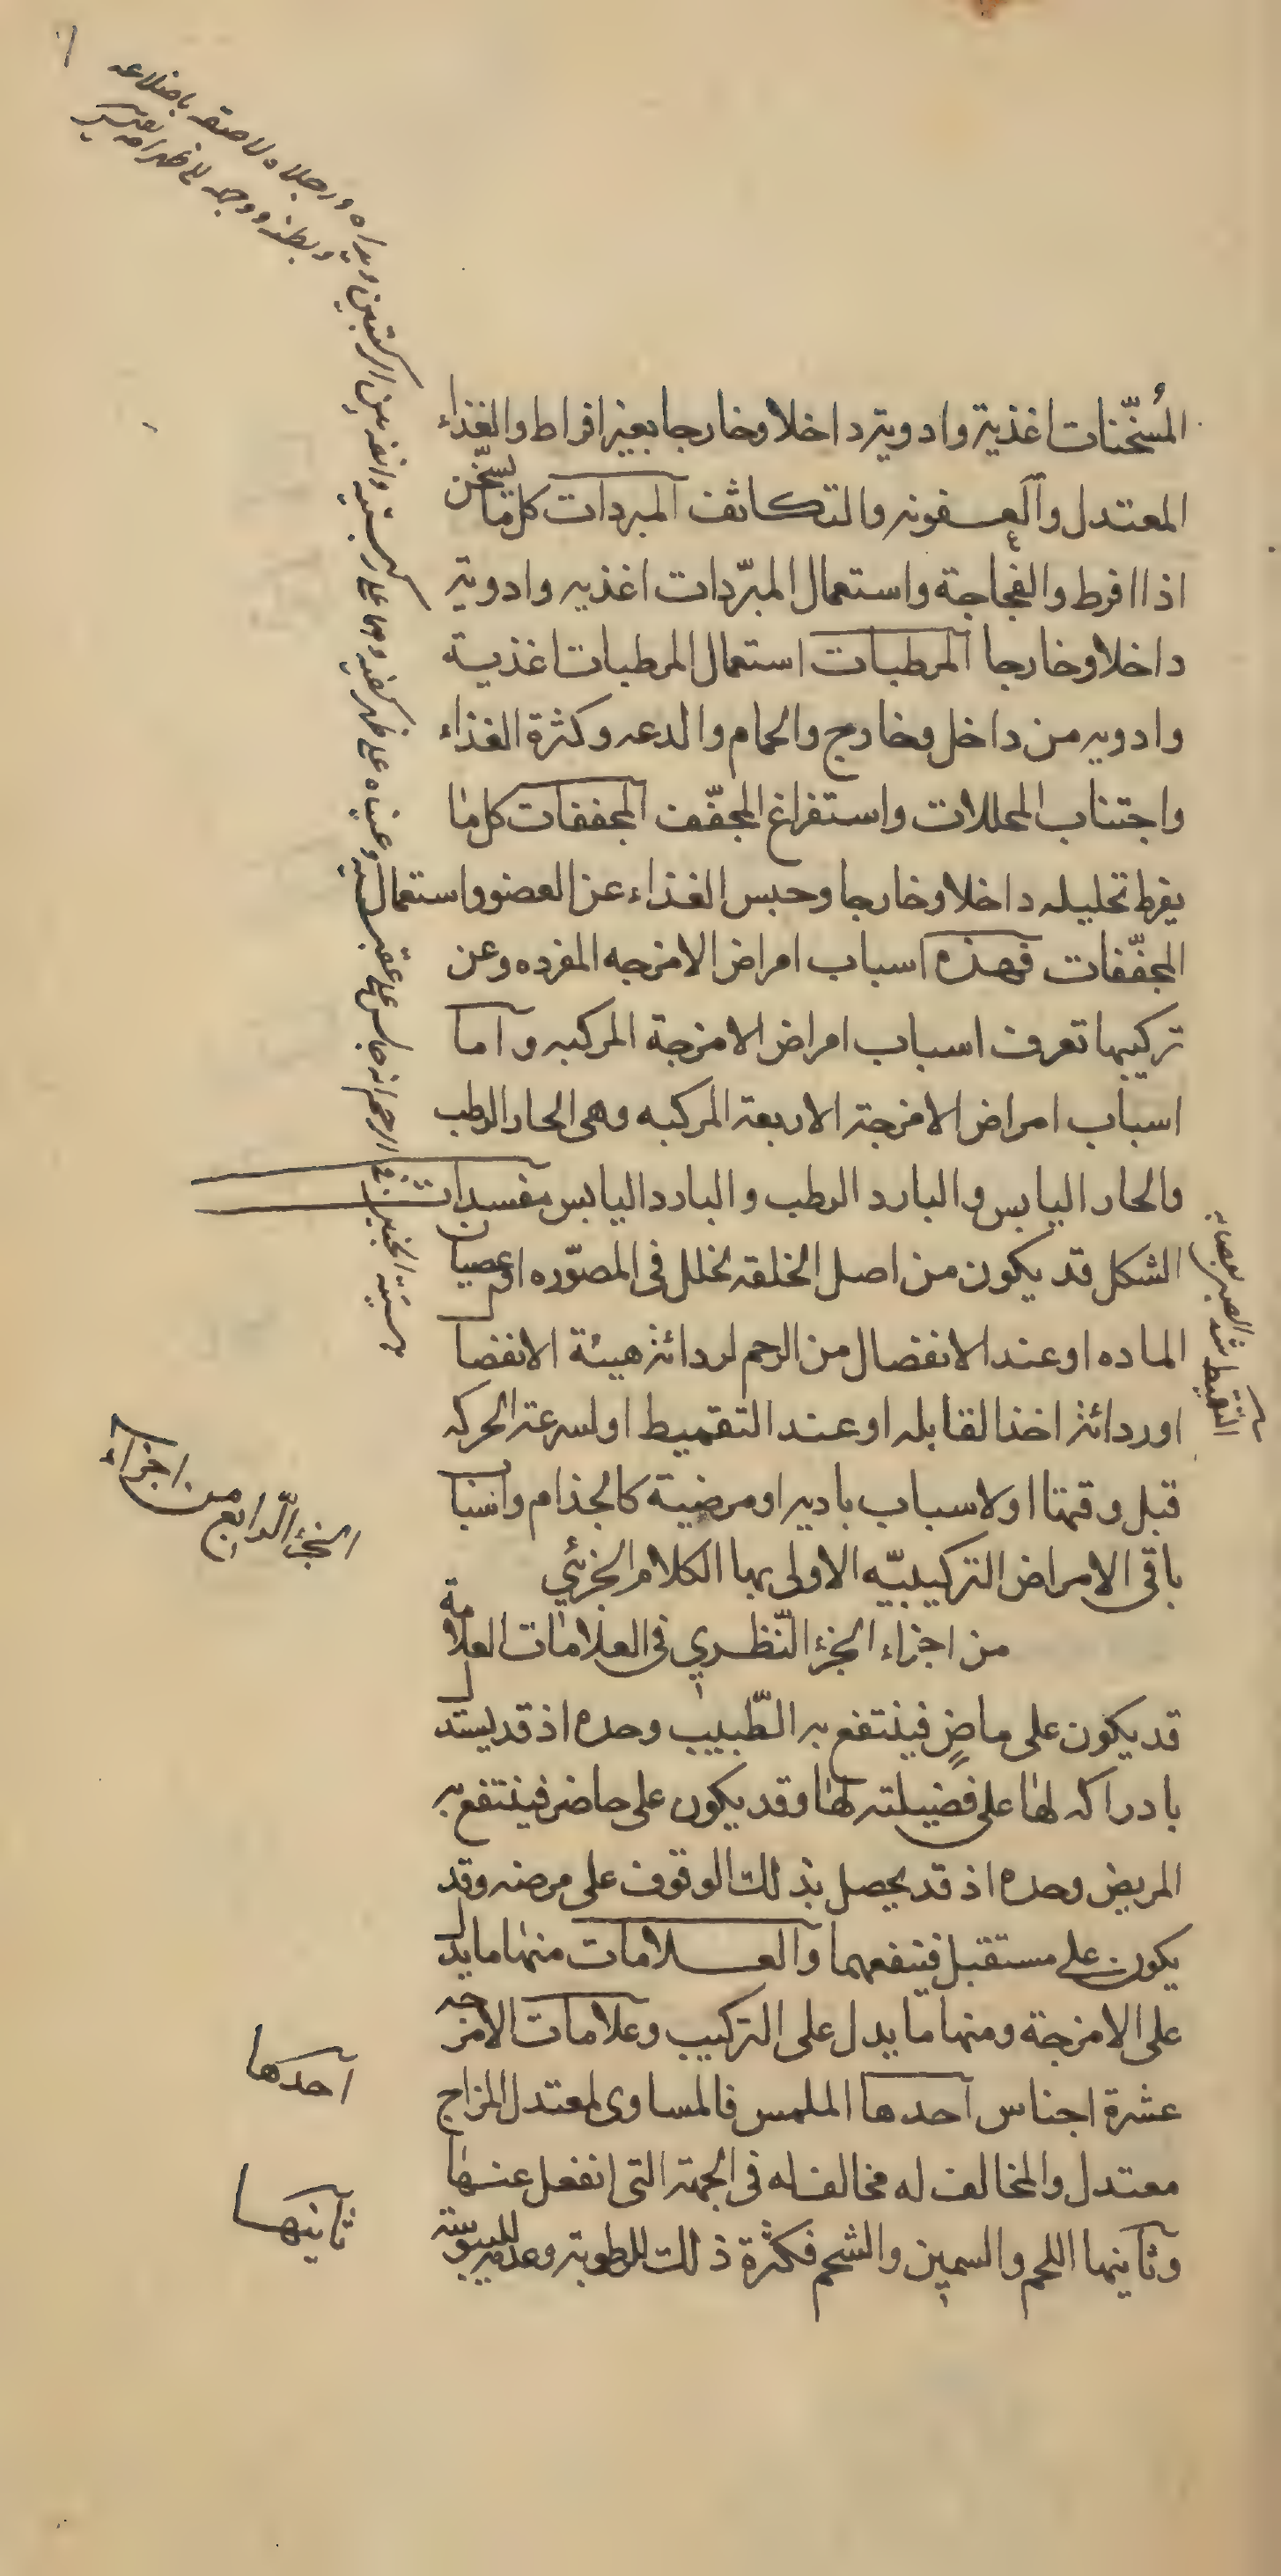 المُسخّنات اغذية وادوية داخلا وخارجا بغير افراط والغذاء
المعتدل والعفونه والتكاثف المبردات كل ما يسخّن
اذا افرط والفجاجة واستعمال المبرّدات اغذيه وادوية
داخلا وخارجا المرطبات استعمال المرطبات اغذية
وادويه من داخل وخارج والحمام والدعه وكثرة الغذاء
واجتناب المحللات واستفراغ المجفّف المجففات كل ما
يفرط تحليله داخلا وخارجا وحبس الغذاء عن العضو واستعمال
المجفّفات فهذه اسباب امراض الامزجه المفرده وعن
تركيبها تعرف اسباب امراض الامزجة المركبه واما
اسباب امراض الامزجة الاربعة المركبه وهى الحار الرطب
والحار اليابس والبارد الرطب والبارد اليابس مفسدات
الشكل قد يكون من اصل الخلقه لخلل فى المصوّره او عصيان
الماده او عند الانفصال من الرحم لردائة هيئة الانفصال
او ردائة اخذ القابله او عند التقميط او لسرعة الحركه
قبل وقتها او لاسباب باديه او مرضية كالجذام واسباب
باقى الامراض التركيبيّه الاولى بها الكلام الجزئي
من اجزاء الجزء النّظري فى العلامات العلامة
قد يكون على ماضٍ فينتفع به الطّبيب وحده اذ قد يستدل
بادراكه لها على فضيلته لها وقد يكون على حاضر فينتفع به
المريض وحده اذ قد يحصل بذلك الوقوف على مرضه وقد
يكون على مستقبل فينفعهما والعلامات منها ما يدل
على الامزجة ومنها ما يدل على التركيب وعلامات الامزجه
عشرة اجناس احدها الملمس فالمساوى لمعتدل المزاج
معتدل والمخالف له مخالف له فى الجهة التى انفعل عنها
وثانيها اللحم والسمين والشحم فكثرة ذلك للرطوبة وعدمه لليبوسة
هيئة الجنين فى الرحم انه جالس على عقبيه وعيناه على ظهر كفيه وهما على ركبتيه وانفه بين الركبتين ويداه ورجلاه لاصقه باضلاعه
وبطنه ووجهه الى ظهر امه
التقميط شد الصبى بعصابه
الجزء الرّابع من اجزاء
احدها
ثانيها